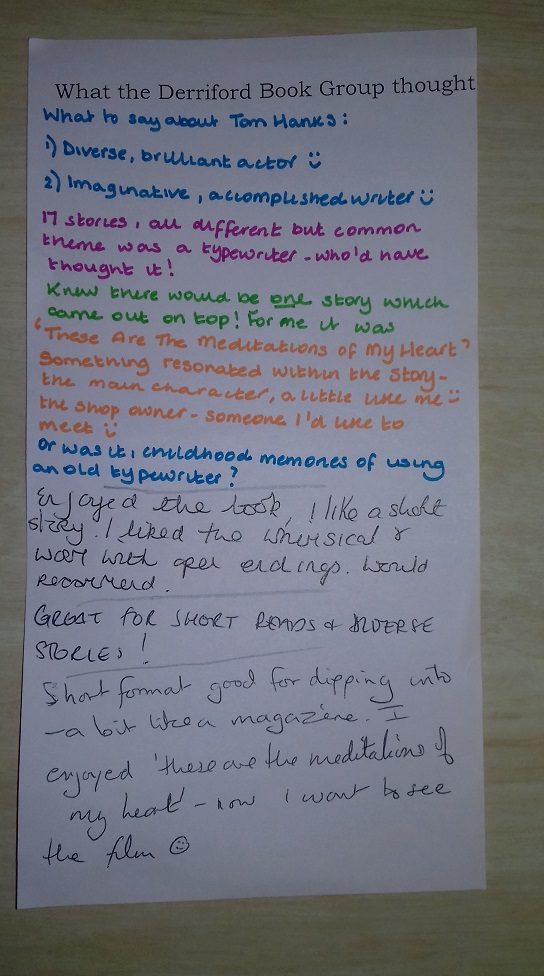 What the Derriford Book Group thought
What to say about Tom Hanks:
1) Diverse, brilliant actor ☺
2) Imaginative, accomplished writer ☺
17 stories, all different but common
theme was a typewriter - who'd have
thought it!
Knew there would be one story which
came out on top! For me it was
'These Are The Meditations of My Heart'
Something resonated within the story-
the main character, a little like me ☺
the shop owner - someone I'd like to
meet ☺
Or was it, childhood memories of using
an old typewriter?
Enjoyed the book, I like a short
story. I liked the whimsical &
work with open endings. Would
recommend.
GREAT FOR SHORT READS & DIVERSE
STORIES!
Short format good for dipping into
- a bit like a magazine. I
enjoyed 'these are the meditations of
my heart' - now I want to see
the film ☺